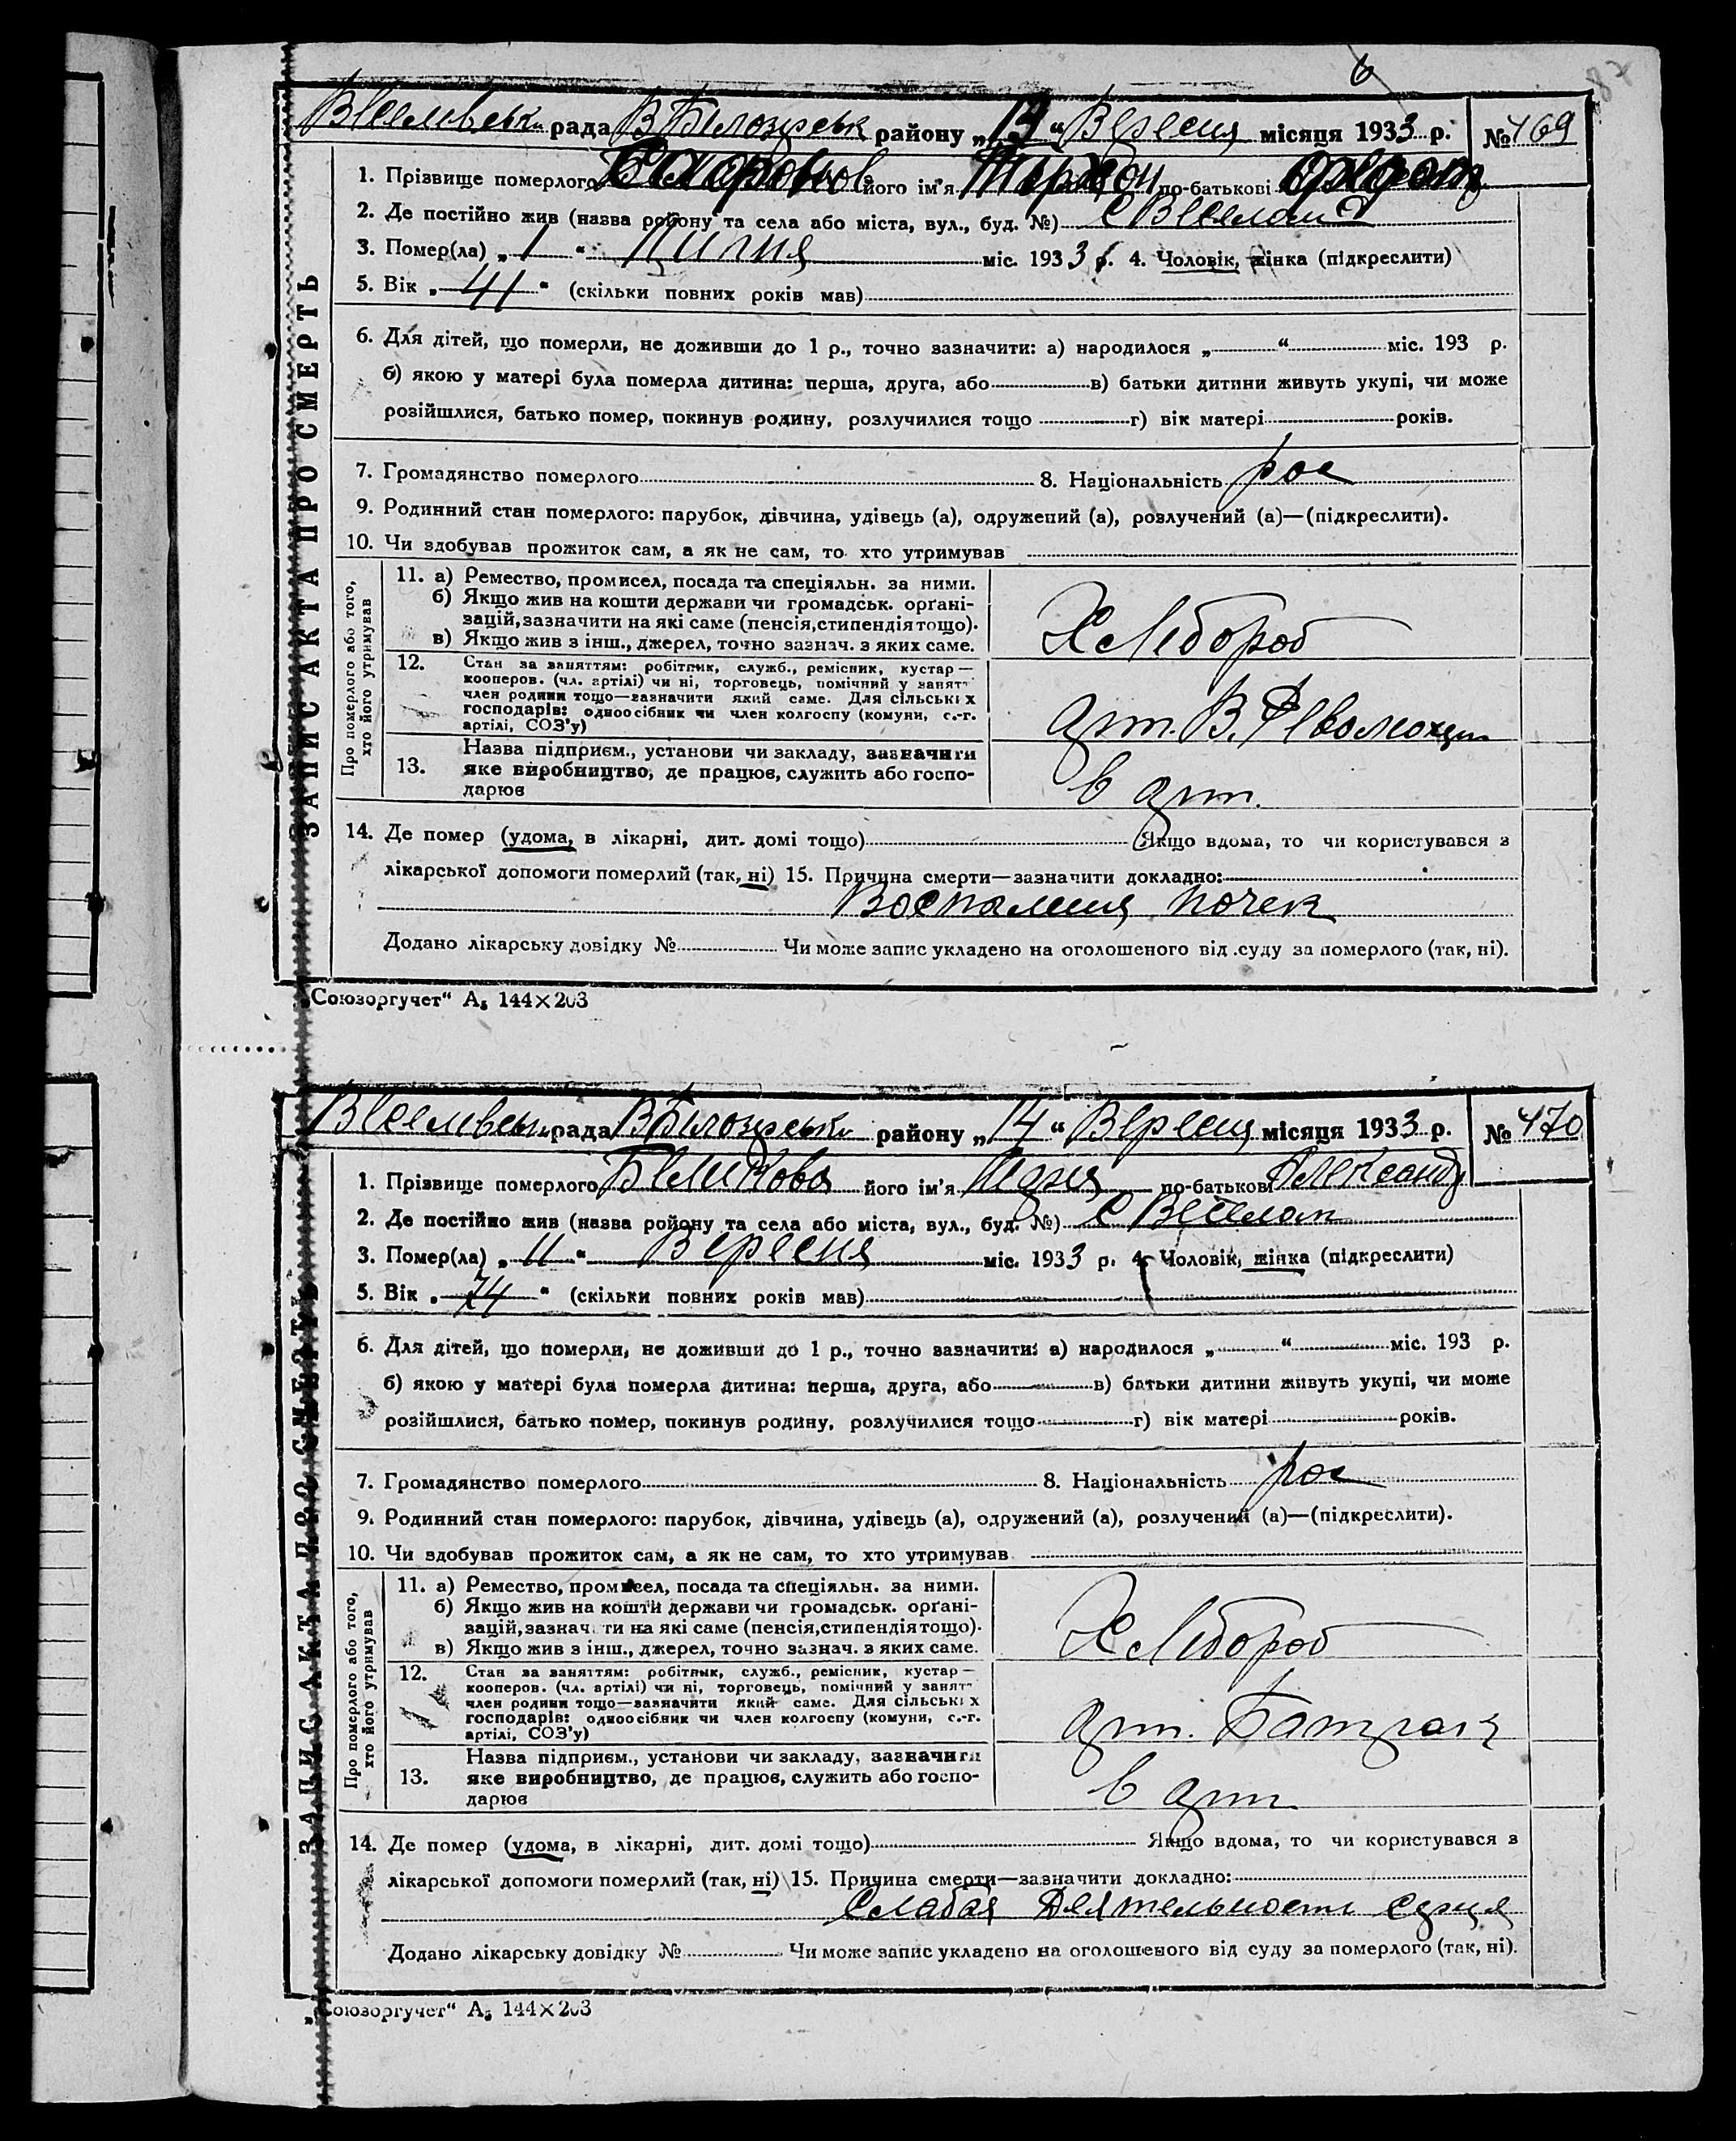 87
Веселівськ рада ВБілозірськ району „13“ Вересня місяця 1933 р. №469
ЗАПИС АКТА ПРО СМЕРТЬ
1. Прізвище померлого його ім'я по-батькові
2. Де постійно жив (назва району та села або міста, вул., буд. №) С Веселом
3. Помер(ла) „1“ Липня міс. 1933 р. 4. Чоловік, жінка (підкреслити)
5. Вік „41“ (скільки повних років мав)
6. Для дітей, що померли, не доживши до 1 р., точно зазначити: а) народилося „ “ міс. 193 р.
б) якою у матері була померла дитина: перша, друга, або в) батьки дитини живуть укупі, чи може
розійшлися, батько помер, покинув родину, розлучилися тощо г) вік матері років.
7. Громадянство померлого 8. Національність рос
9. Родинний стан померлого: парубок, дівчина, удівець (а), одружений (а), розлучений (а)—(підкреслити).
10. Чи здобував прожиток сам, а як не сам, то хто утримував
Про померлого або того,
хто його утримував
11. а) Ремество, промисел, посада та спеціяльн. за ними.
б) Якщо жив на кошти держави чи громадськ. орґані-
зацій, зазначити на які саме (пенсія, стипендія тощо).
в) Якщо жив з інш., джерел, точно зазнач. з яких саме.
Хлебороб
12. Стан за заняттям: робітник, служб., ремісник, кустар—
кооперов. (чл. артілі) чи ні, торговець, помічний у занят
член родини тощо—зазначити який саме. Для сільських
господарів: одноосібник чи член колгоспу (комуни, с.-г.
артілі, СОЗ'у)
арт. В. Революции
13. Назва підприєм., установи чи закладу, зазначити
яке виробництво, де працює, служить або госпо-
дарює
в арт.
14. Де помер (удома, в лікарні, дит. домі тощо) Якщо вдома, то чи користувався з
лікарської допомоги померлий (так, ні) 15. Причина смерти—зазначити докладно:
Воспаления почек
Додано лікарську довідку № Чи може запис укладено на оголошеного від суду за померлого (так, ні).
„Союзоргучет“ А₅ 144×203
Веселівськ рада ВБілозірськ району „14“ Вересня місяця 1933 р. №470
ЗАПИС АКТА ПРО СМЕРТЬ
1. Прізвище померлого Беликова його ім'я по-батькові Александ
2. Де постійно жив (назва району та села або міста, вул., буд. №) С Веселом
3. Помер(ла) „11“ Вересня міс. 1933 р. 4. Чоловік, жінка (підкреслити)
5. Вік „74“ (скільки повних років мав)
6. Для дітей, що померли, не доживши до 1 р., точно зазначити: а) народилося „ “ міс. 193 р.
б) якою у матері була померла дитина: перша, друга, або в) батьки дитини живуть укупі, чи може
розійшлися, батько помер, покинув родину, розлучилися тощо г) вік матері років.
7. Громадянство померлого 8. Національність рос
9. Родинний стан померлого: парубок, дівчина, удівець (а), одружений (а), розлучений (а)—(підкреслити).
10. Чи здобував прожиток сам, а як не сам, то хто утримував
Про померлого або того,
хто його утримував
11. а) Ремество, промисел, посада та спеціяльн. за ними.
б) Якщо жив на кошти держави чи громадськ. орґані-
зацій, зазначити на які саме (пенсія, стипендія тощо).
в) Якщо жив з інш., джерел, точно зазнач. з яких саме.
Хлебороб
12. Стан за заняттям: робітник, служб., ремісник, кустар—
кооперов. (чл. артілі) чи ні, торговець, помічний у занят
член родини тощо—зазначити який саме. Для сільських
господарів: одноосібник чи член колгоспу (комуни, с.-г.
артілі, СОЗ'у)
арт. Батрак
13. Назва підприєм., установи чи закладу, зазначити
яке виробництво, де працює, служить або госпо-
дарює
в арт
14. Де помер (удома, в лікарні, дит. домі тощо) Якщо вдома, то чи користувався з
лікарської допомоги померлий (так, ні) 15. Причина смерти—зазначити докладно:
Слабая Деятельность
Додано лікарську довідку № Чи може запис укладено на оголошеного від суду за померлого (так, ні).
„Союзоргучет“ А₅ 144×203